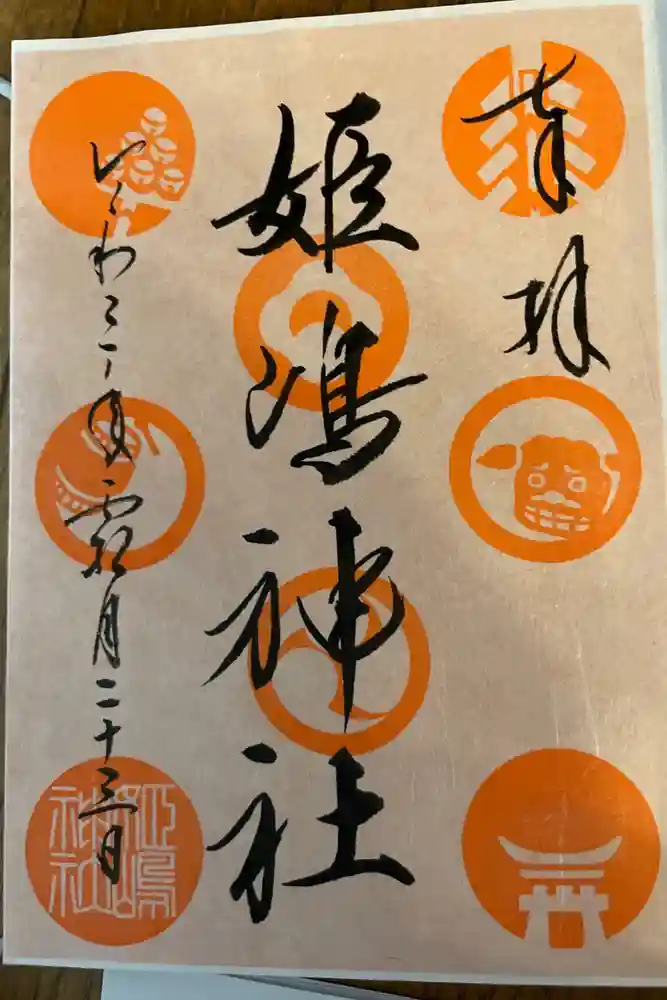 奉拝
姫嶋神社
令和三年霜月二十三日
姫嶋
神社